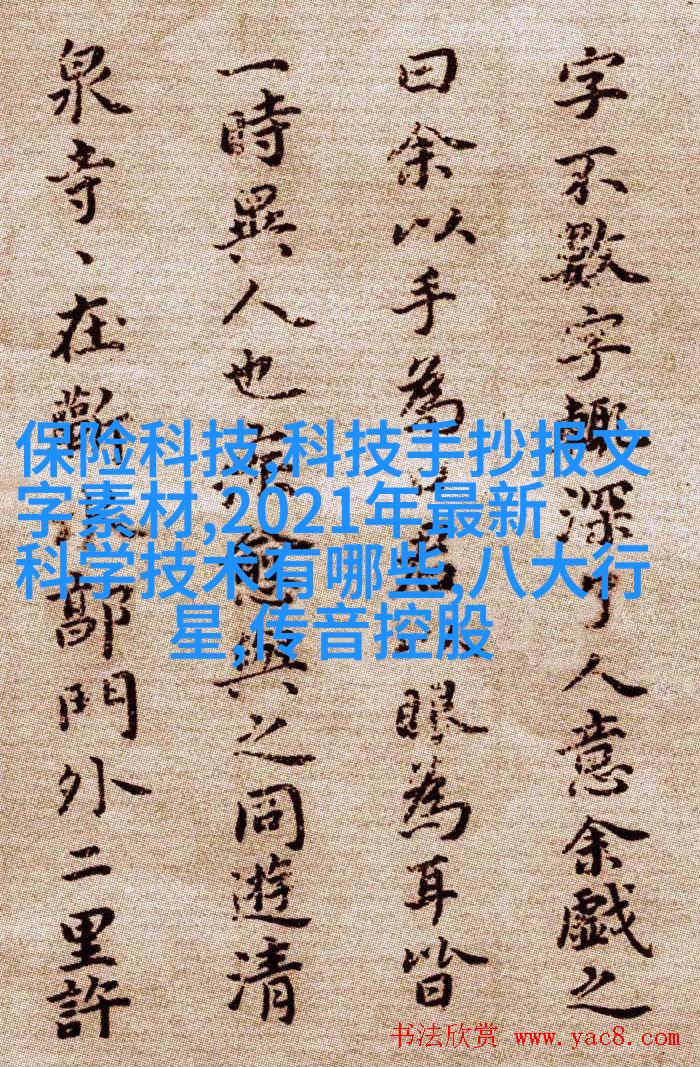 字不數字輒深了人意余戲之
曰余以手為眼為耳皆
一時異人也與之同遊清
泉寺、在鄗門外二里許
保险科技,科技手抄报文
字素材,2021年最新
科学技术有哪些,八大行
星,传音控股
书法欣赏 www.yac8.com